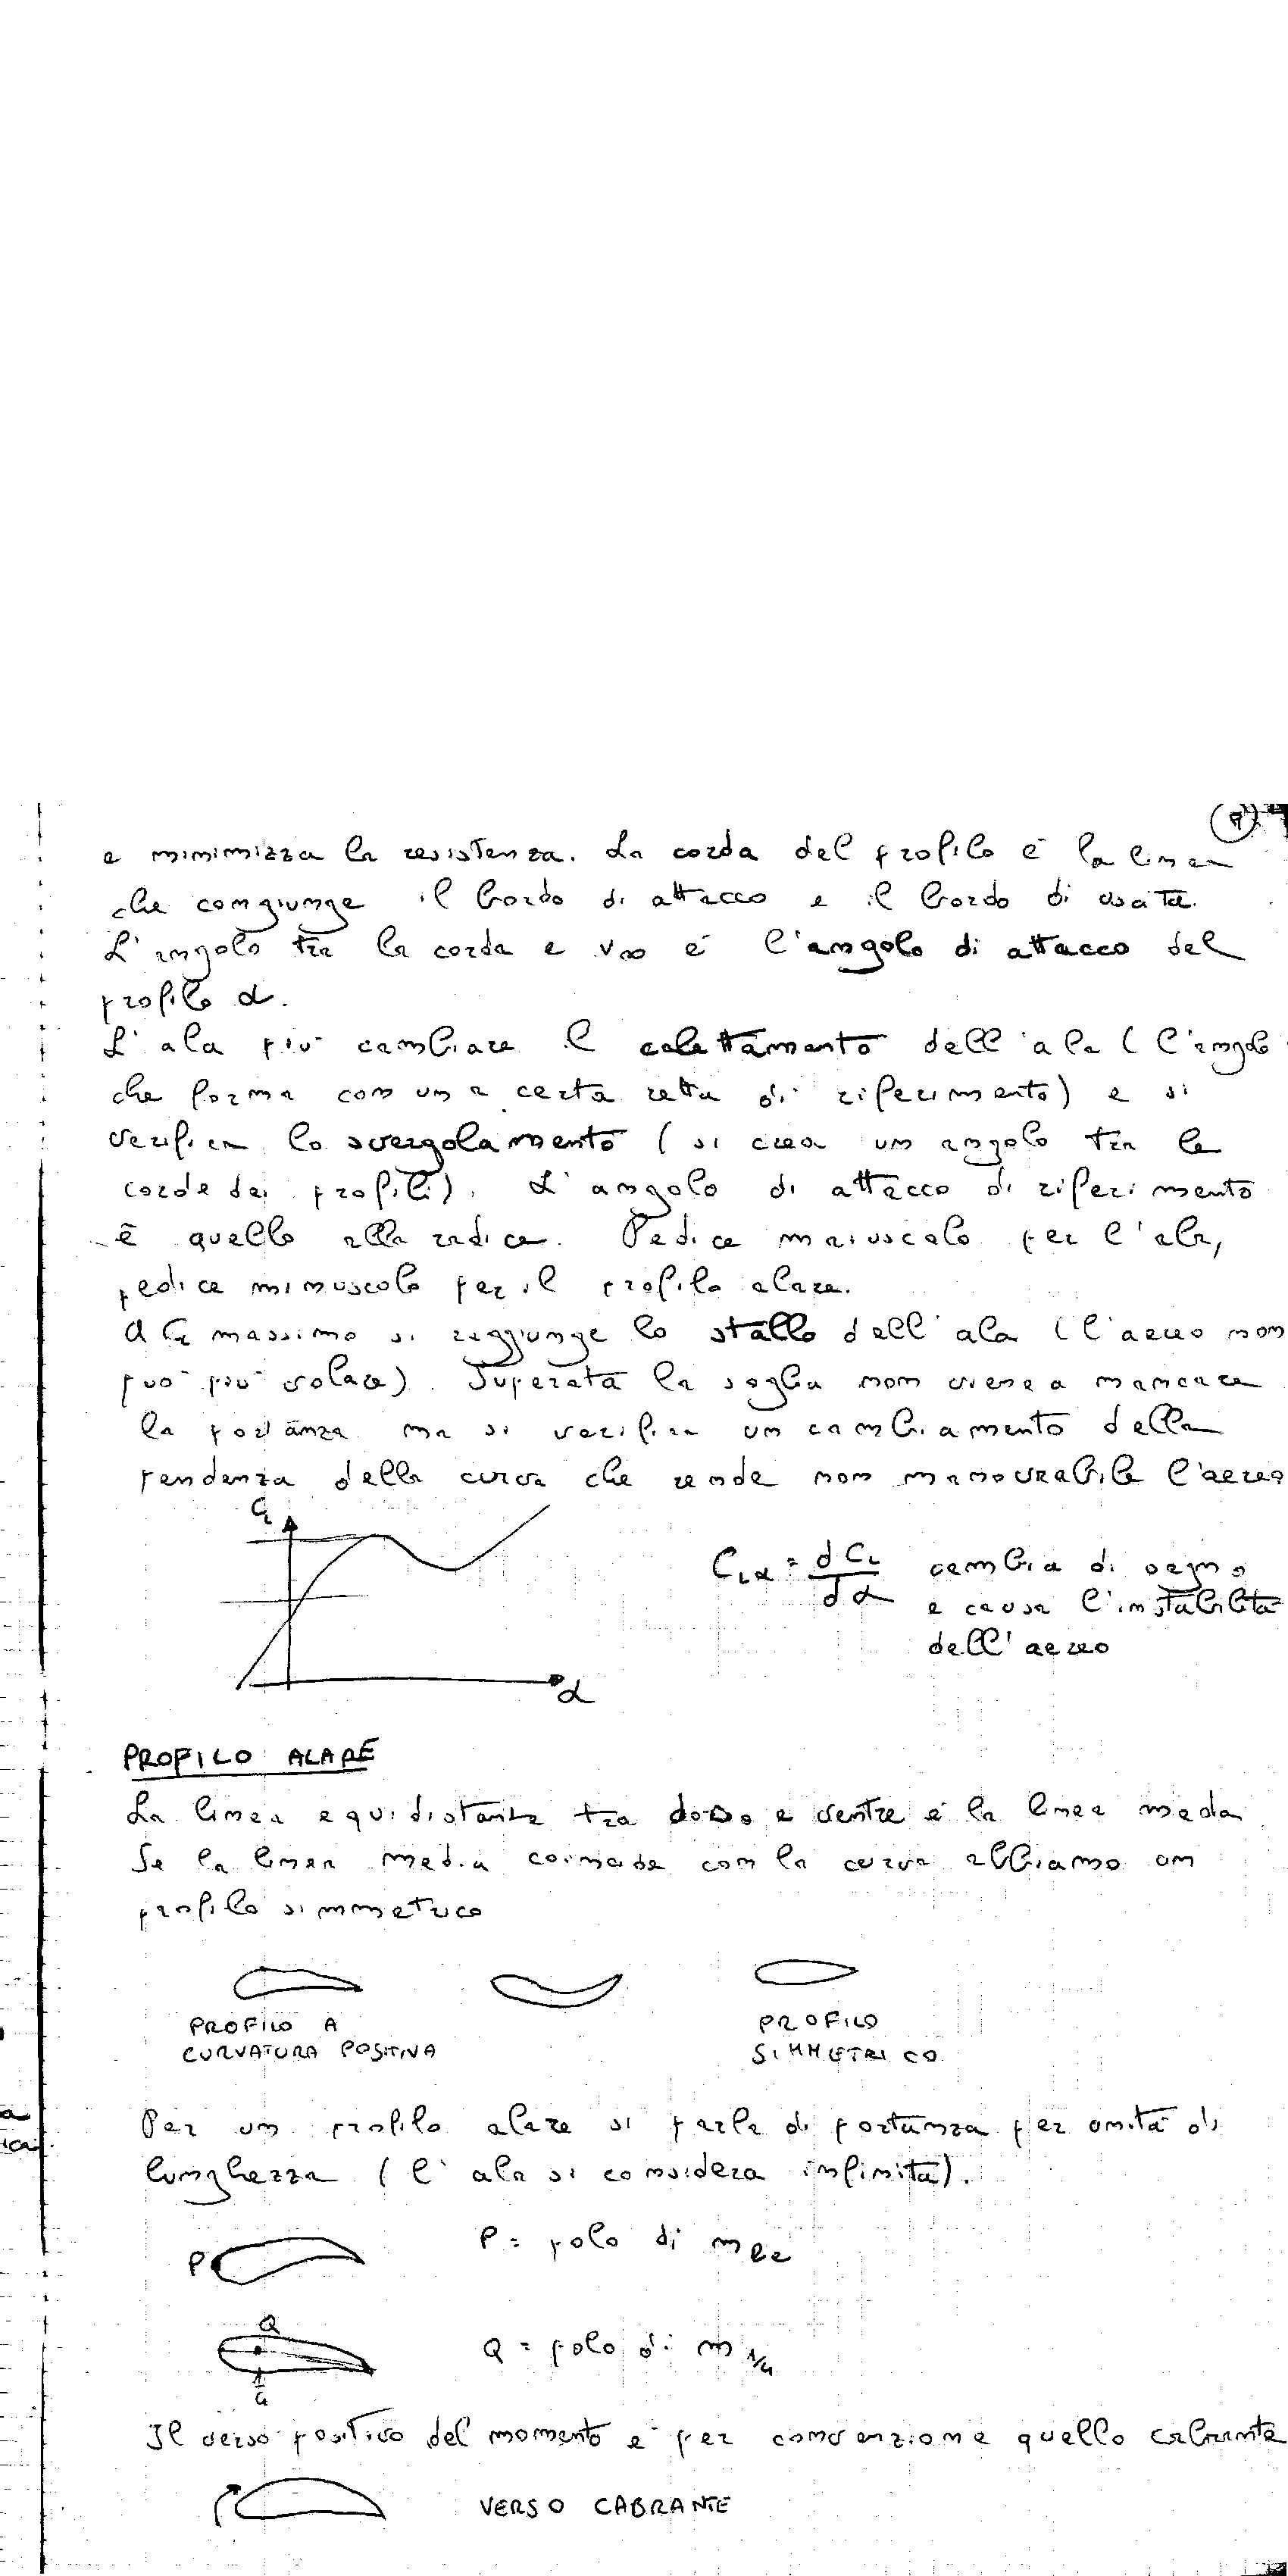 e minimizza la resistenza. La corda del profilo è la linea
che congiunge il bordo di attacco e il bordo di uscita.
L'angolo tra la corda e V∞ è l'angolo di attacco del
profilo α.
L'ala può cambiare il calettamento dell'ala (l'angolo
che forma con una certa retta di riferimento) e si
verifica lo svergolamento (si crea un angolo tra le
corde dei profili). L'angolo di attacco di riferimento
è quello alla radice. Pedice maiuscolo per l'ala,
pedice minuscolo per il profilo alare.
A CL massimo si raggiunge lo stallo dell'ala (l'aereo non
può più volare). Superata la soglia non viene a mancare
la portanza ma si verifica un cambiamento della
tendenza della curva che rende non manovrabile l'aereo
CL
CLα = dCL/dα cambia di segno
e causa l'instabilità
dell'aereo
α
PROFILO ALARE
La linea equidistante tra dorso e ventre è la linea media
Se la linea media coincide con la curva abbiamo un
profilo simmetrico
PROFILO A PROFILO
CURVATURA POSITIVA SIMMETRICO
Per un profilo alare si parla di portanza per unità di
lunghezza (l'ala si considera infinita).
P P = polo di m le
Q
Q = polo di m 1/4
1/4
Il verso positivo del momento è per convenzione quello cabrante
VERSO CABRANTE